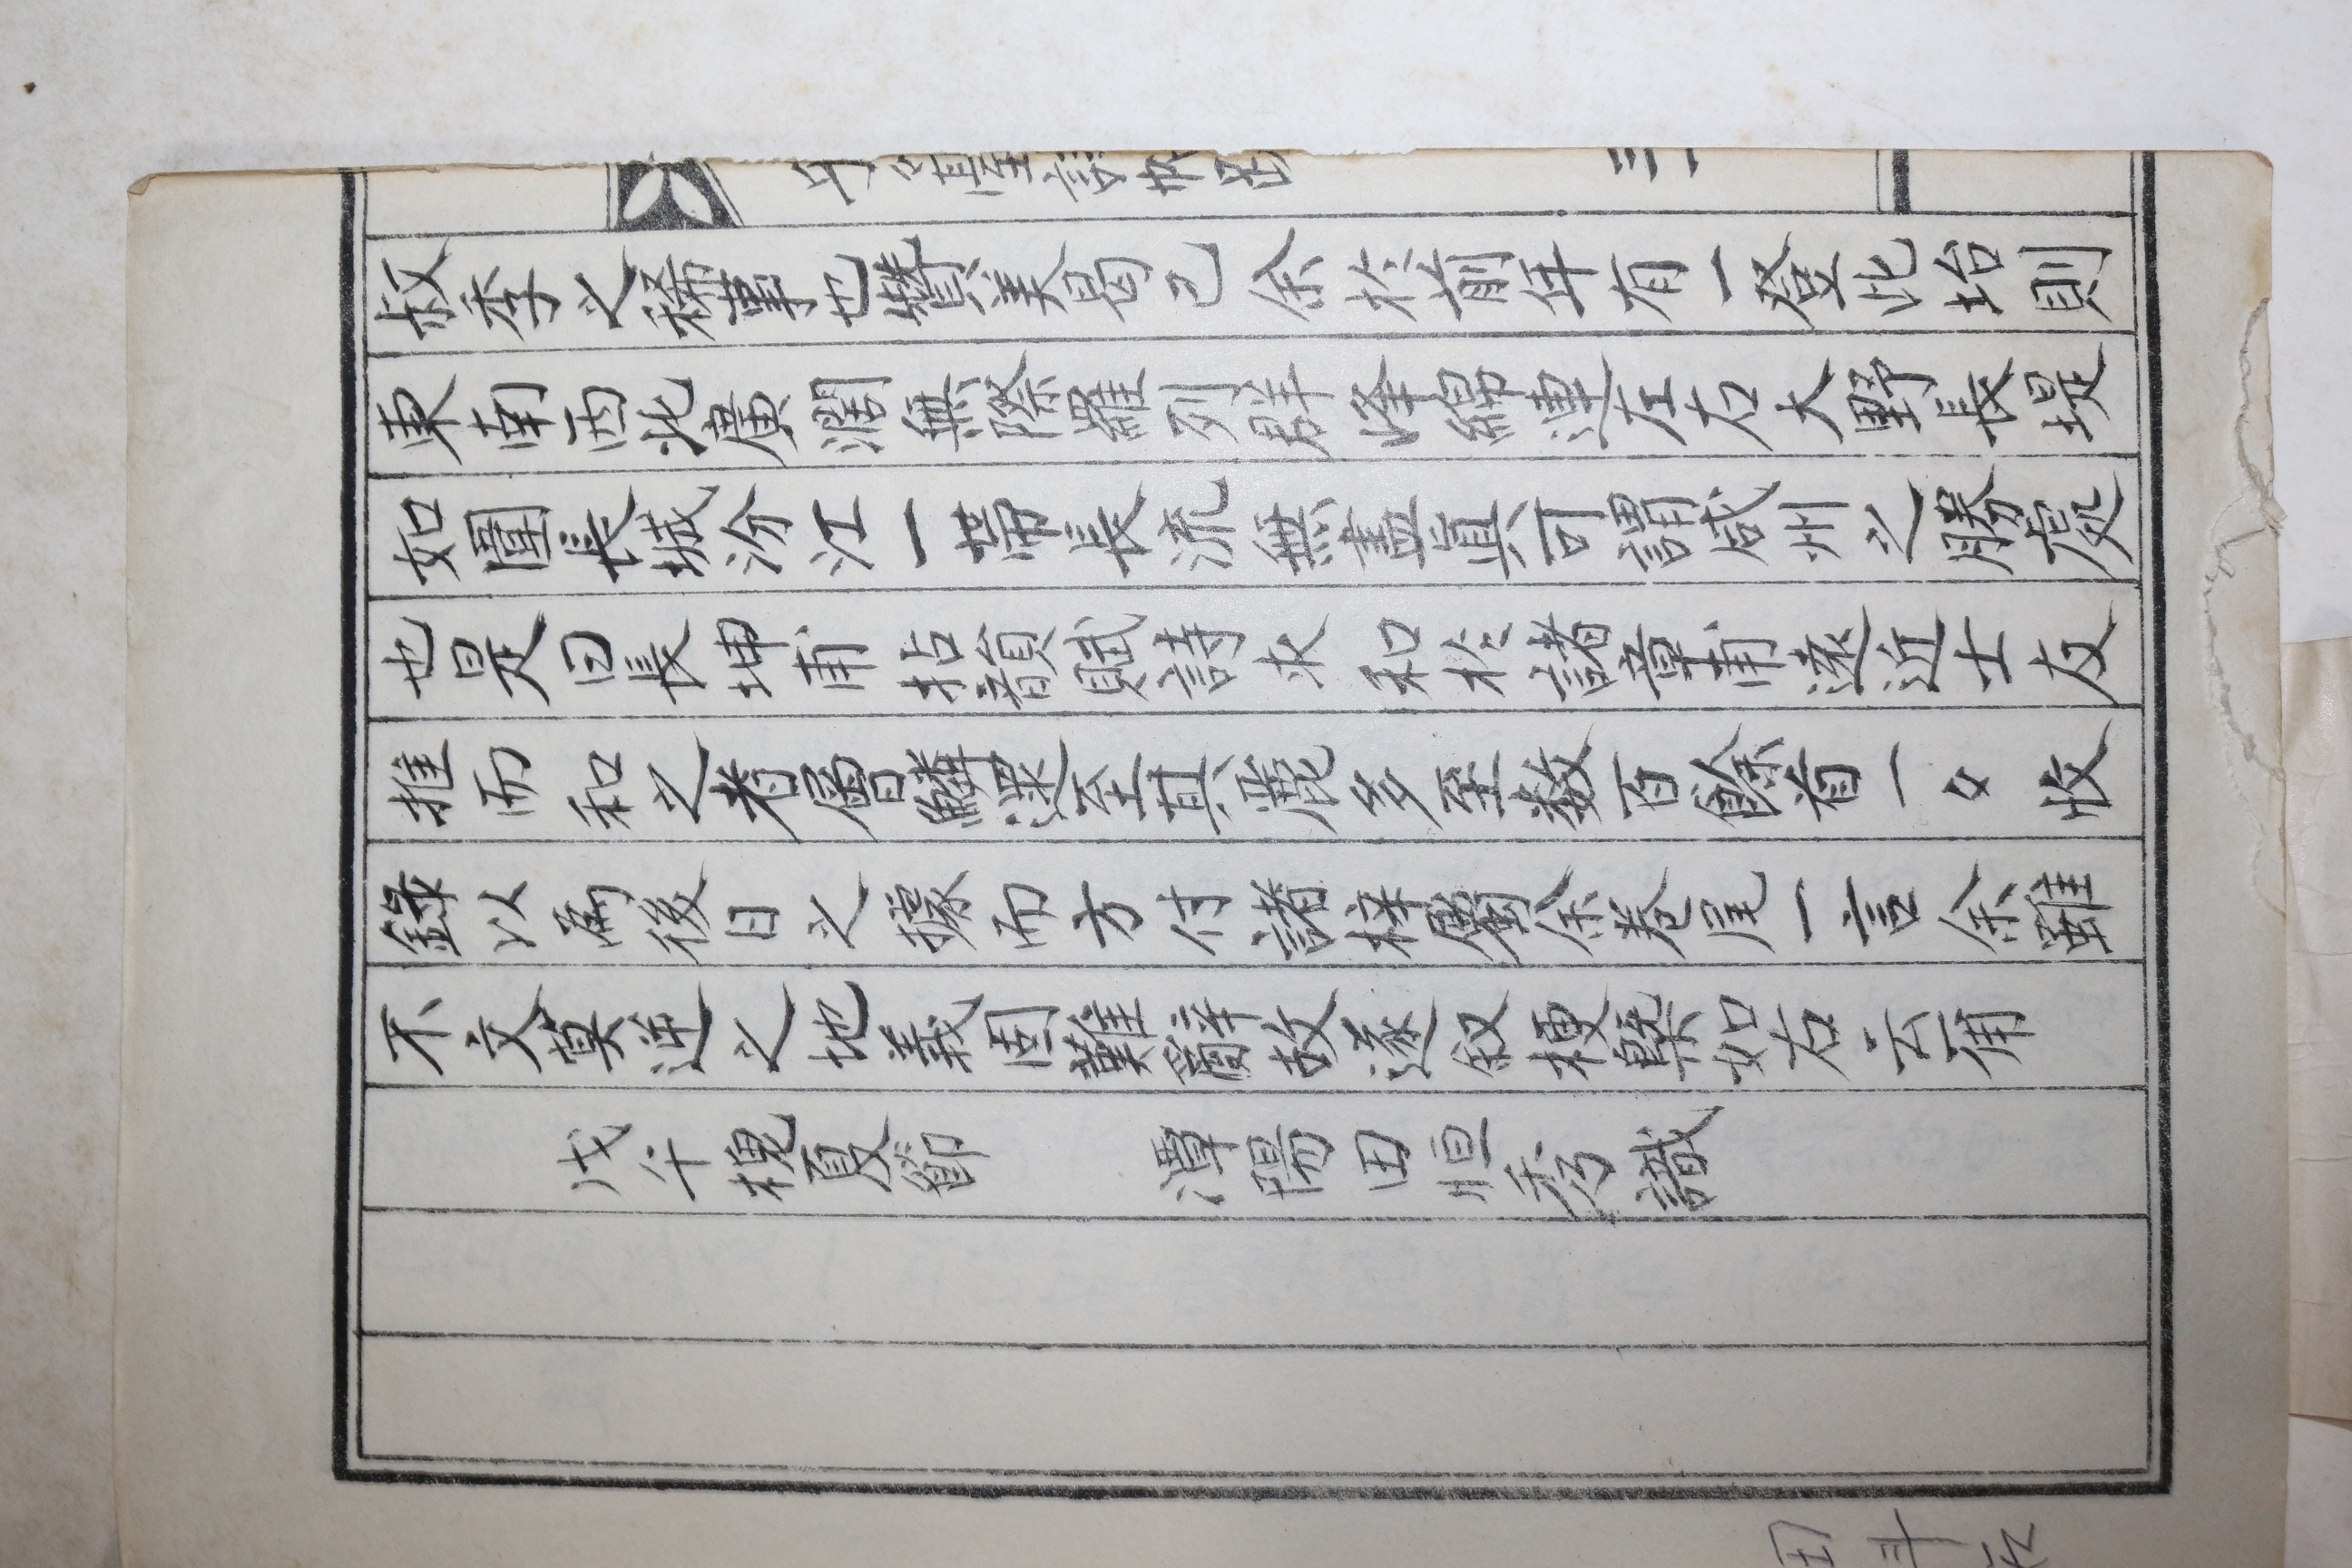 臺詩
三一
叔季之稀事也贊美曷已余於前年有一登此坮則
東南西北廣濶無際羅列群峰綿連左右大野長堤
如圍長城汾江一帶長流無盡眞可謂咸州之勝處
也是曰長坤甫拈韻賦詩求和於諸章甫遠近士友
推而和之者層鱗還至其麗多至数百餘首一々收
錄以爲後日之據而方付諸梓屬余卷尾一言余雖
不文莫逆之地義固難辭故遂叙梗槩如右云甭
戊午槐夏節　潭陽田恒秀識
田